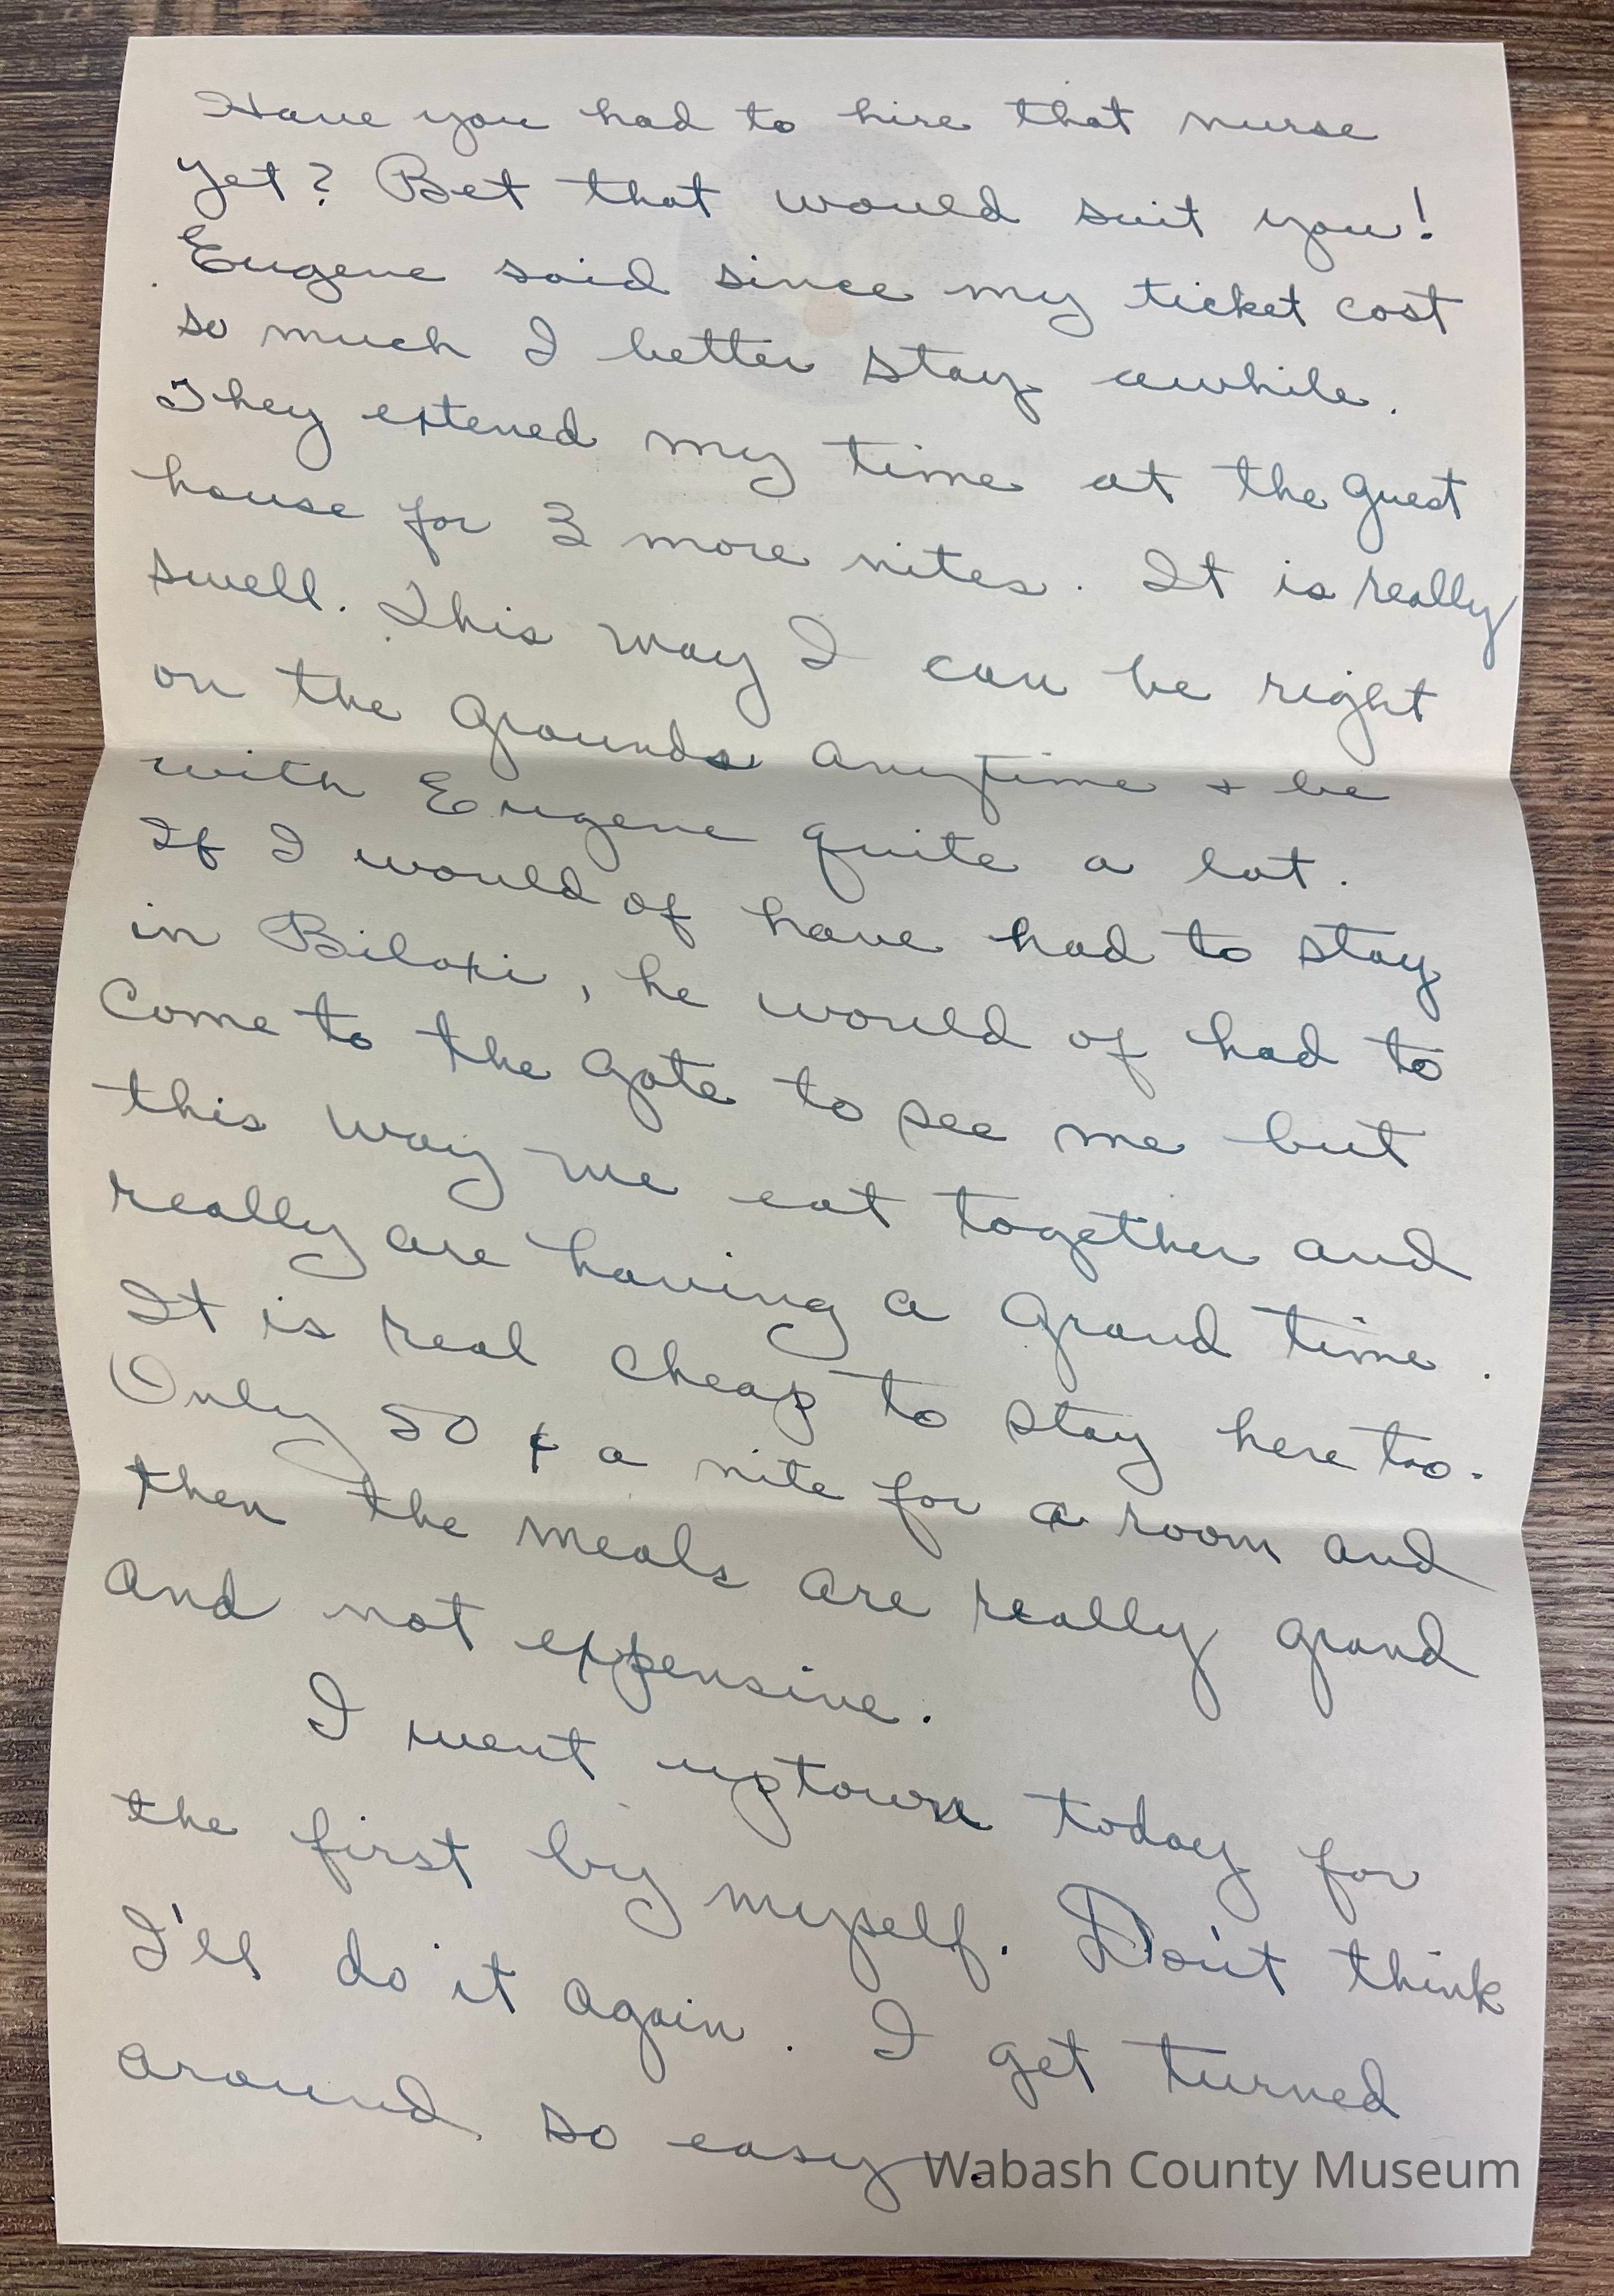 Have you had to hire that nurse
yet? Bet that would suit you!
Eugene said since my ticket cost
so much I better stay awhile.
They extened my time at the guest
house for 3 more nites. It is really
swell. This way I can be right
on the grounds anytime + be
with Eugene quite a lot.
If I would of have had to stay
in Biloxi, he would of had to
come to the gate to see me but
this way we eat together and
really are having a grand time.
It is real cheap to stay here too.
Only 50 ¢ a nite for a room and
then the meals are really grand
and not expensive.
I went uptown today for
the first by myself. Don't think
I'll do it again. I get turned
around so easy.
Wabash County Museum